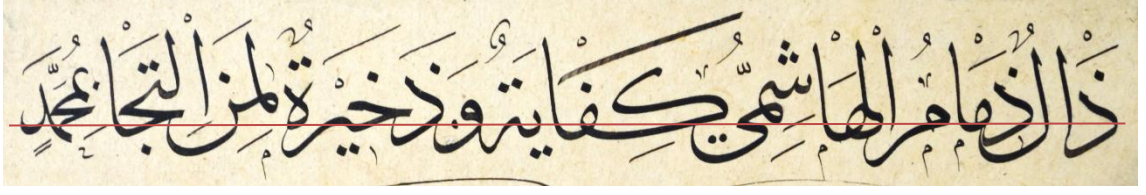 ذَالْ ذِمَامُ الْهَاشِمِيِّ كِفَايَةٌ وَذَخِيْرَةٌ لِمَنِ الْتَجَا بِمُحَمَّدٍ